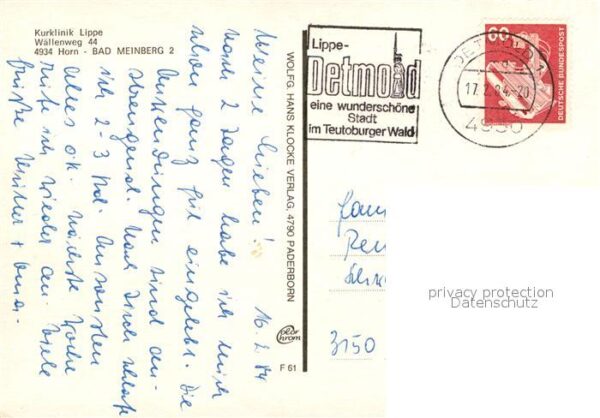 Kurklinik Lippe
Wällenweg 44
4934 Horn - BAD MEINBERG 2
16.2.84
Meine Lieben!
Nach 2 Tagen habe ich mich
schon ganz gut eingelebt. Die
Anwendungen sind an-
strengend. Nach Tisch schlafe
ich 2-3 Std. Ansonsten
alles o.k. Nächste Woche
rufe ich wieder an. Viele
Grüße
WOLFG. HANS KLOCKE VERLAG, 4790 PADERBORN
color
chrom
F 61
Lippe-
Detmold
eine wunderschöne
Stadt
im Teutoburger Wald
DETMOLD 1
17.2.84-20
4930
60
DEUTSCHE BUNDESPOST
Fam
3150
privacy protection
Datenschutz